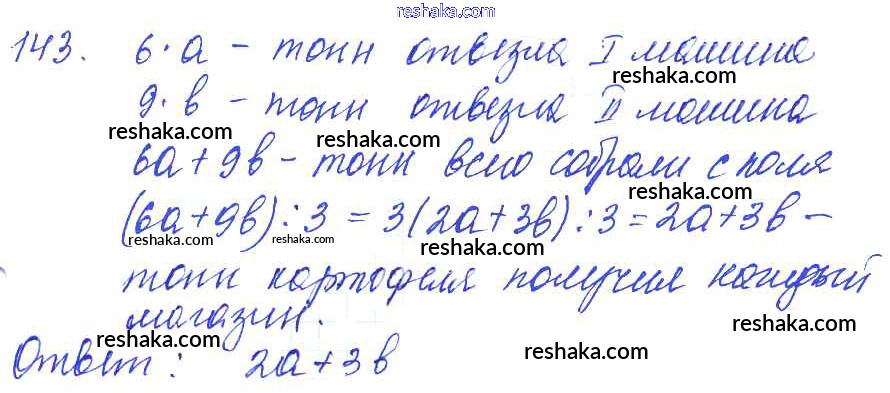 reshaka.com
143. 6·а – тонн отвезла I машина
reshaka.com reshaka.com
9·в – тонн отвезла II машина
reshaka.com reshaka.com reshaka.com
6а+9в – тонн всего собрали с поля
reshaka.com
(6а+9в):3 = 3(2а+3в):3 = 2а+3в –
reshaka.com reshaka.com reshaka.com
тонн картофеля получил каждый
магазин.
reshaka.com reshaka.com
Ответ: 2а+3в
reshaka.com